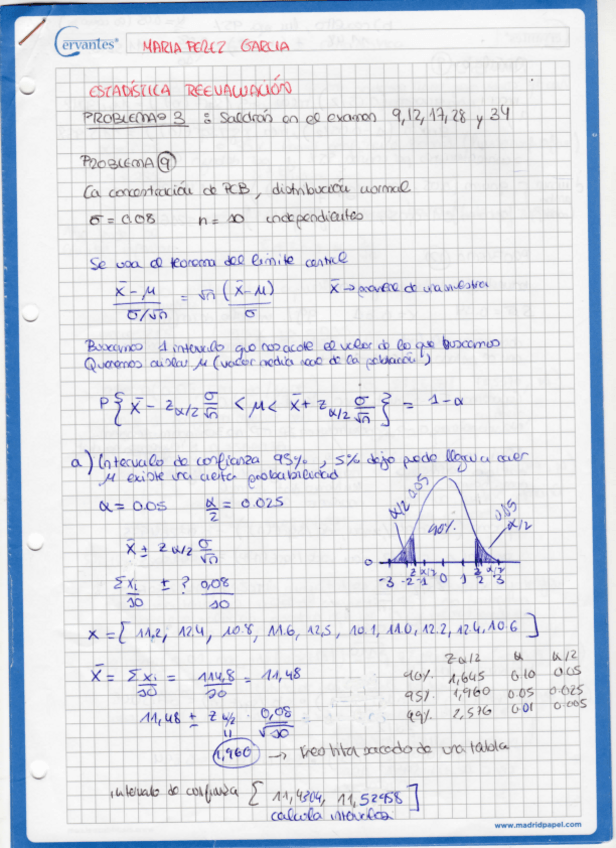 Cervantes®
MARIA PEREZ GARCIA
ESTADÍSTICA REEVALUACIÓN
PROBLEMAS 3 : Saldrán en el examen 9, 12, 17, 28 y 34
PROBLEMA 9
La concentración de PCB, distribución normal
σ = 0.08 n = 10 independientes
Se usa el teorema del límite central
(x̄ - μ)/(σ/√n) = √n (x̄ - μ)/σ x̄ → promedio de una muestra
Buscamos 1 intervalo que nos acote el valor de lo que buscamos
Queremos aislar μ (valor media real de la población)
P{ x̄ - z_α/2 σ/√n < μ < x̄ + z_α/2 σ/√n } = 1 - α
a) Intervalo de confianza 95%, 5%
μ existe una cierta probabilidad
α = 0.05 α/2 = 0.025
α/2 0.05
90%
0.05
α/2
x̄ ± z α/2 σ/√n
0
-3 -2 -1 0 1 2 3
Σxi/10 ± ? 0,08/10
x = [ 11,2, 12,4, 10.8, 11.6, 12,5, 10.1, 11.0, 12.2, 12.4, 10.6 ]
z α/2 α α/2
x̄ = Σxi/10 = 114,8/10 = 11,48
90% 1,645 0.10 0.05
95% 1,960 0.05 0.025
99% 2,576 0.01 0.005
11,48 ± z α/2 · 0,08/√10
1,960 → sacado de una tabla
intervalo de confianza [ 11,4304, 11,52958 ]
calcula intervalos
www.madridpapel.com